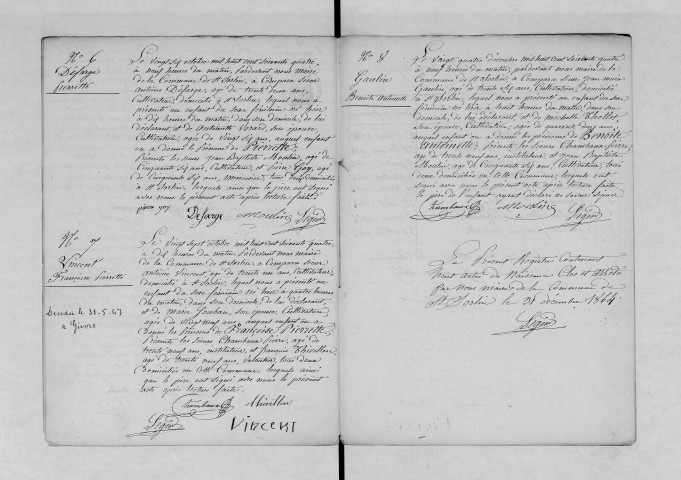 N.° 6
Deforge
Pierrette
Le Vingt six octobre mil huit cent soixante quatre,
à neuf heures du matin, Pardevant nous Maire
de la Commune de St Sorlin, a Comparu Sieur
Antoine Deforge, agé de trente deux ans,
Cultivateur, domicilié à St Sorlin, lequel nous a
présenté un enfant du sexe féminin, né hier
à dix heures du matin, dans son domicile, de lui
déclarant, et de Antoinette Verard, son épouse
Cultivatrice, agée de Vingt six ans, auquel enfant
on a donné le prénom de Pierrette
Présents les sieurs Jean Baptiste Moulin, agé de
Cinquante six ans, Cultivateur, et Pierre Goy, agé
de Cinquante six ans, tous deux domiciliés
à St Sorlin, lesquels ainsi que le père ont signé
avec nous le présent acte après lecture faite.
pierre goy Deforge
N.° 7
Vincent
Françoise Pierrette
Décédée le 31-5-47
a Givors
Le Vingt sept octobre mil huit cent soixante quatre,
à dix heures du matin, Pardevant nous maire
de la Commune de St Sorlin, a Comparu Sieur
Antoine Vincent, agé de trente un ans, Cultivateur,
domicilié à St Sorlin, lequel nous a présenté un
enfant du sexe féminin né hier à quatre heures
du matin, dans son domicile, de lui déclarant,
et de Marie son épouse, Cultivatrice,
agée de Vingt neuf ans, auquel enfant on a
donné les Prénoms de Françoise Pierrette
Présents les sieurs Chambaux Pierre, agé de
trente neuf ans, instituteur, et françois Thivillon
agé de trente neuf ans, tous deux
domiciliés en cette Commune, lesquels ainsi
que le père ont signé avec nous le présent
acte après lecture faite.
Chambaux Thivillon
Vincent
N.° 8
Gaulin
Benoite Antoinette
Le Vingt quatre décembre mil huit cent soixante quatre
à neuf heures du matin, pardevant nous maire de la
Commune de St Sorlin, a Comparu Sieur Jean Marie
Gaulin, agé de trente six ans, Cultivateur, domicilié
à St Sorlin, lequel nous a présenté un enfant du sexe
féminin né hier à huit heures du matin, dans son
domicile, de lui déclarant, et de Thollot
son épouse, Cultivatrice, agée de quarante deux ans,
auquel enfant on a donné le prénom de Benoite
Antoinette Présents les sieurs Chambaux Pierre,
agé de trente neuf ans, instituteur, et Jean Baptiste
Moulin, agé de Cinquante six ans, Cultivateur, tous
deux domiciliés en cette Commune, lesquels ont
signé avec nous le présent acte après lecture faite
le père de l'enfant ayant déclaré ne savoir signer.
Chambaux
Le Présent Registre Contenant
huit actes de Naissances Clos et arrêté
par Nous maire de la Commune de
St Sorlin le 31 décembre 1864.